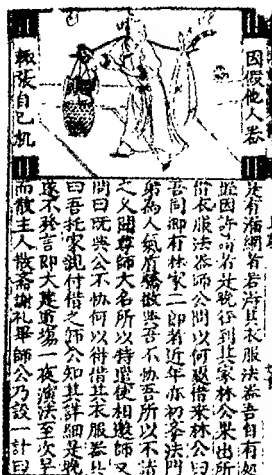 因假他人器
輒張自己机
法有滿網者若許其衣服法器吾自有处
置因許諾者是晚徑到其家林公果出所
借衣服法器師公問以何處借來林公曰
吾同鄉有林家二郎者近年亦初奉法門
弟為人氣質驕傲與吾不協吾所以不請
之又聞尊師大名所以特遣使相邀師又
問曰既與公不協何以得借其衣服器具
曰吾托家親付借之師公知其詳細是晚
遂不發言即大建道場一夜演法至次早
而散主人散齋謝礼畢師公乃設一計曰